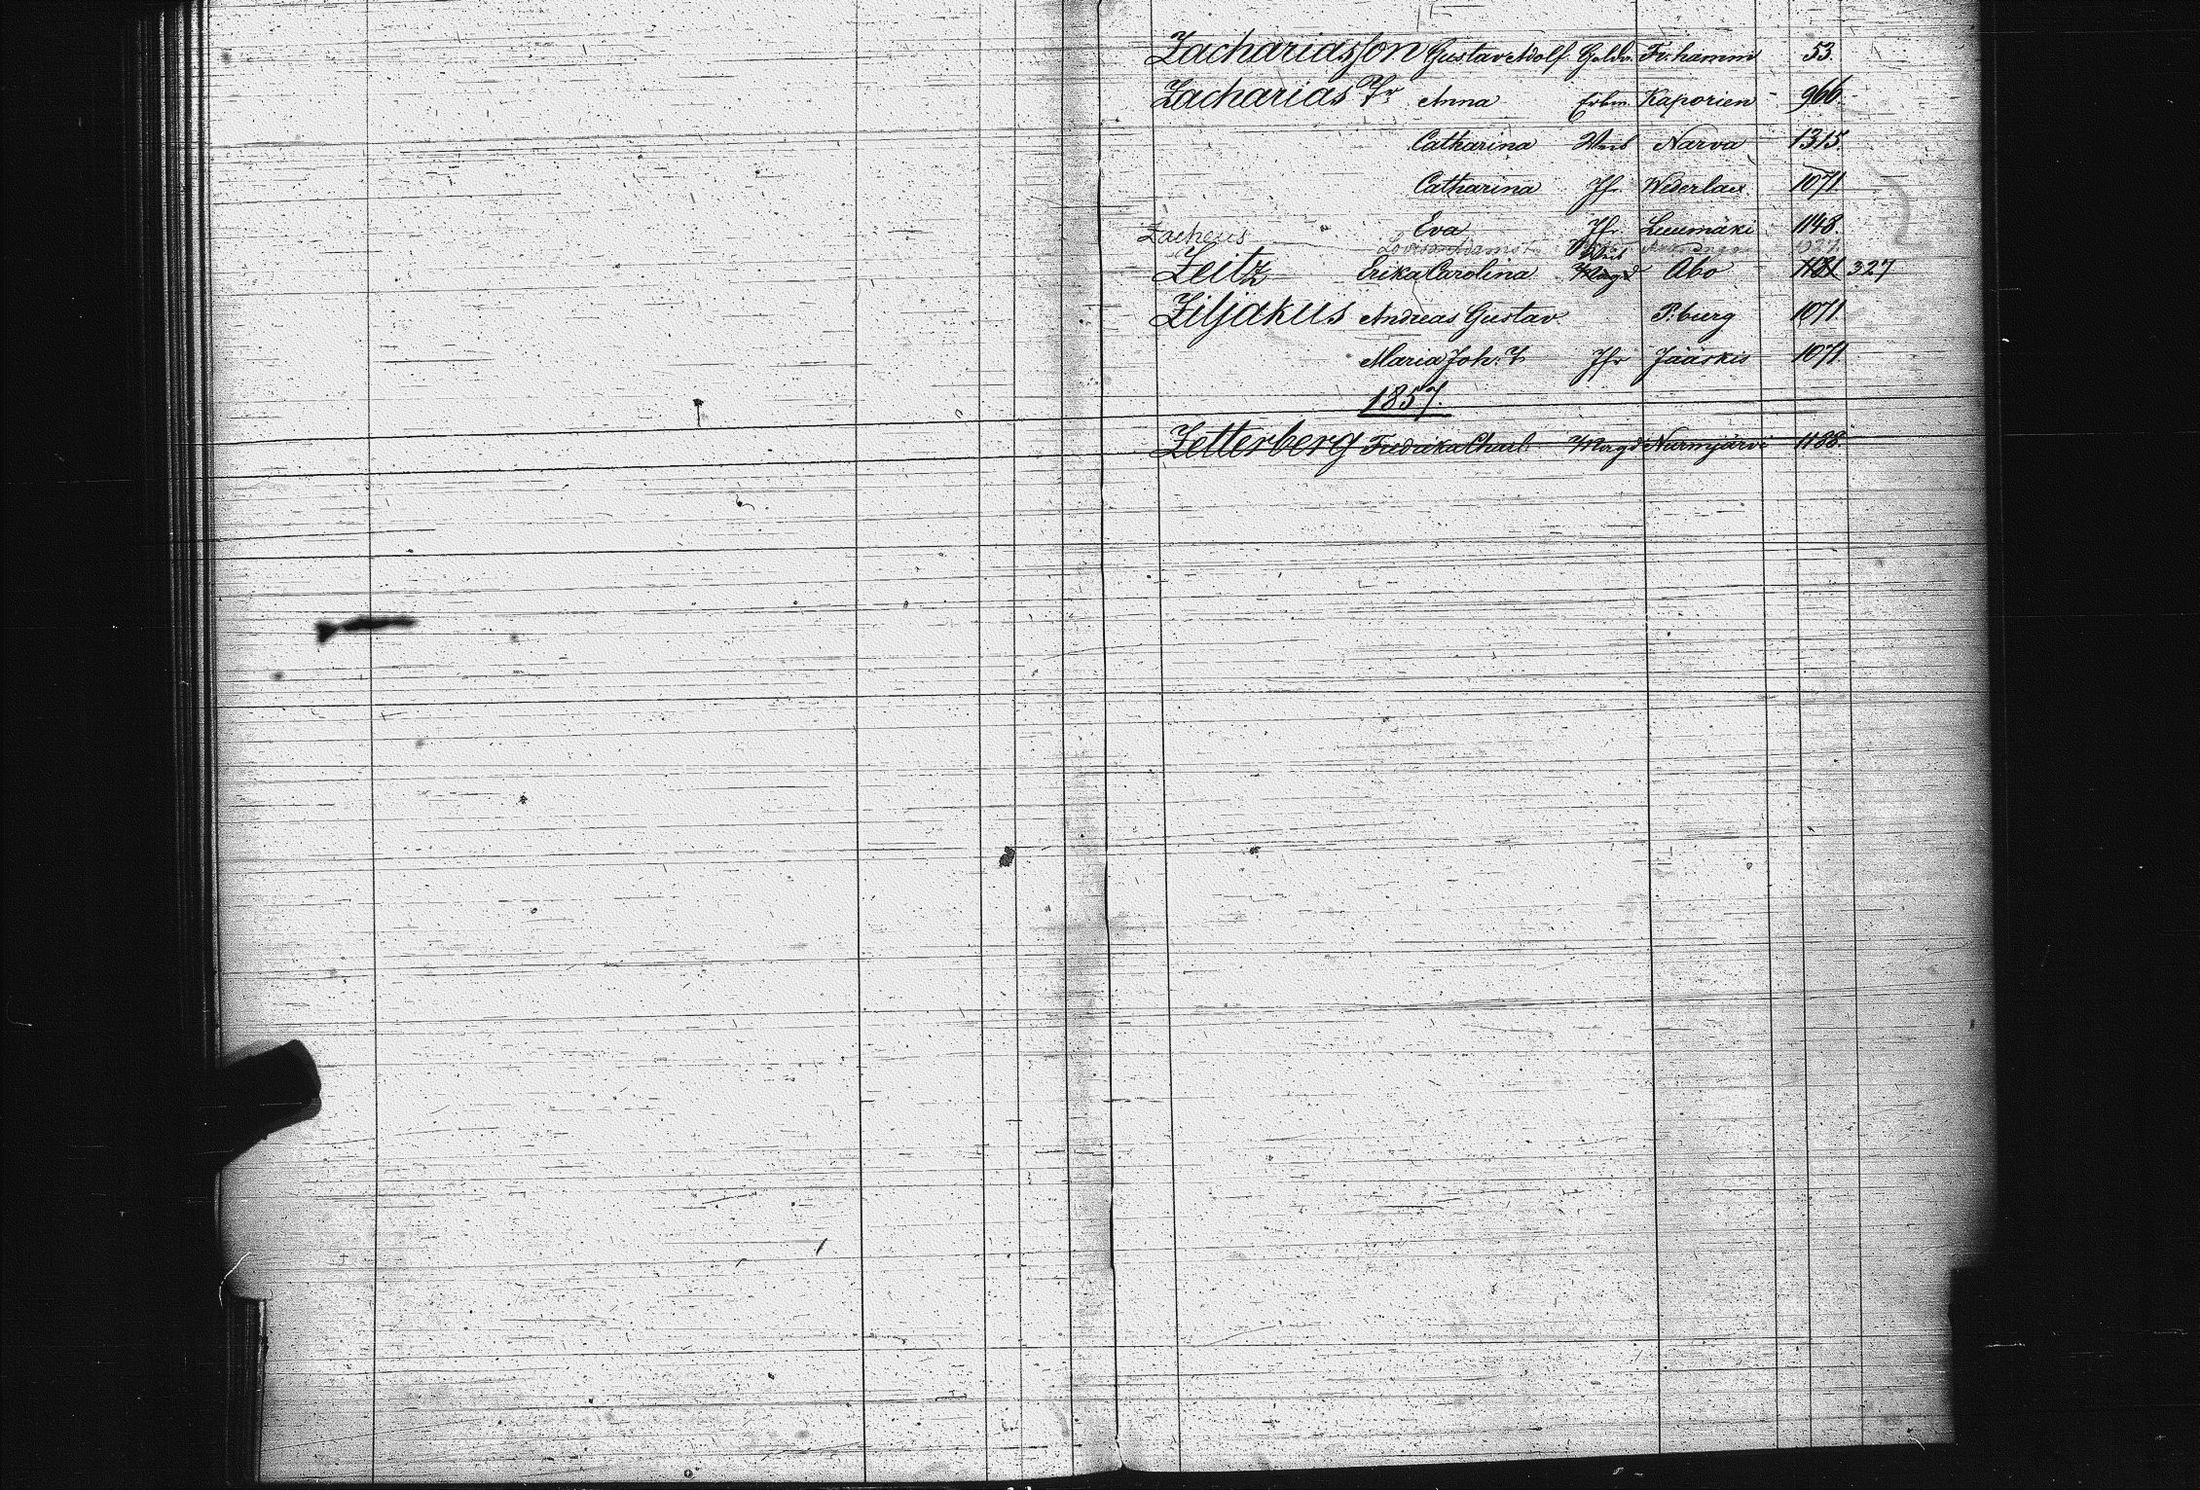 Zachariasson Gustav Adolf Goldm. Fr:hamm 53.
Zacharias Tr Anna Erbm Kaporien 966.
Catharina Wus Narva 1315.
Catharina Jfr Wederlax 1071
Eva Jfr. Luumäki 1148.
Zacheus Lovisa Adamst:
Zeitz Erika Carolina Magd Åbo 1181 327
Ziljakus Andreas Gustav P:burg 1071.
Maria Joh: T. Jfr Jääskis 1071.
1857.
Zetterberg Fredrika Charl: Magd Nurmijärvi 1188.